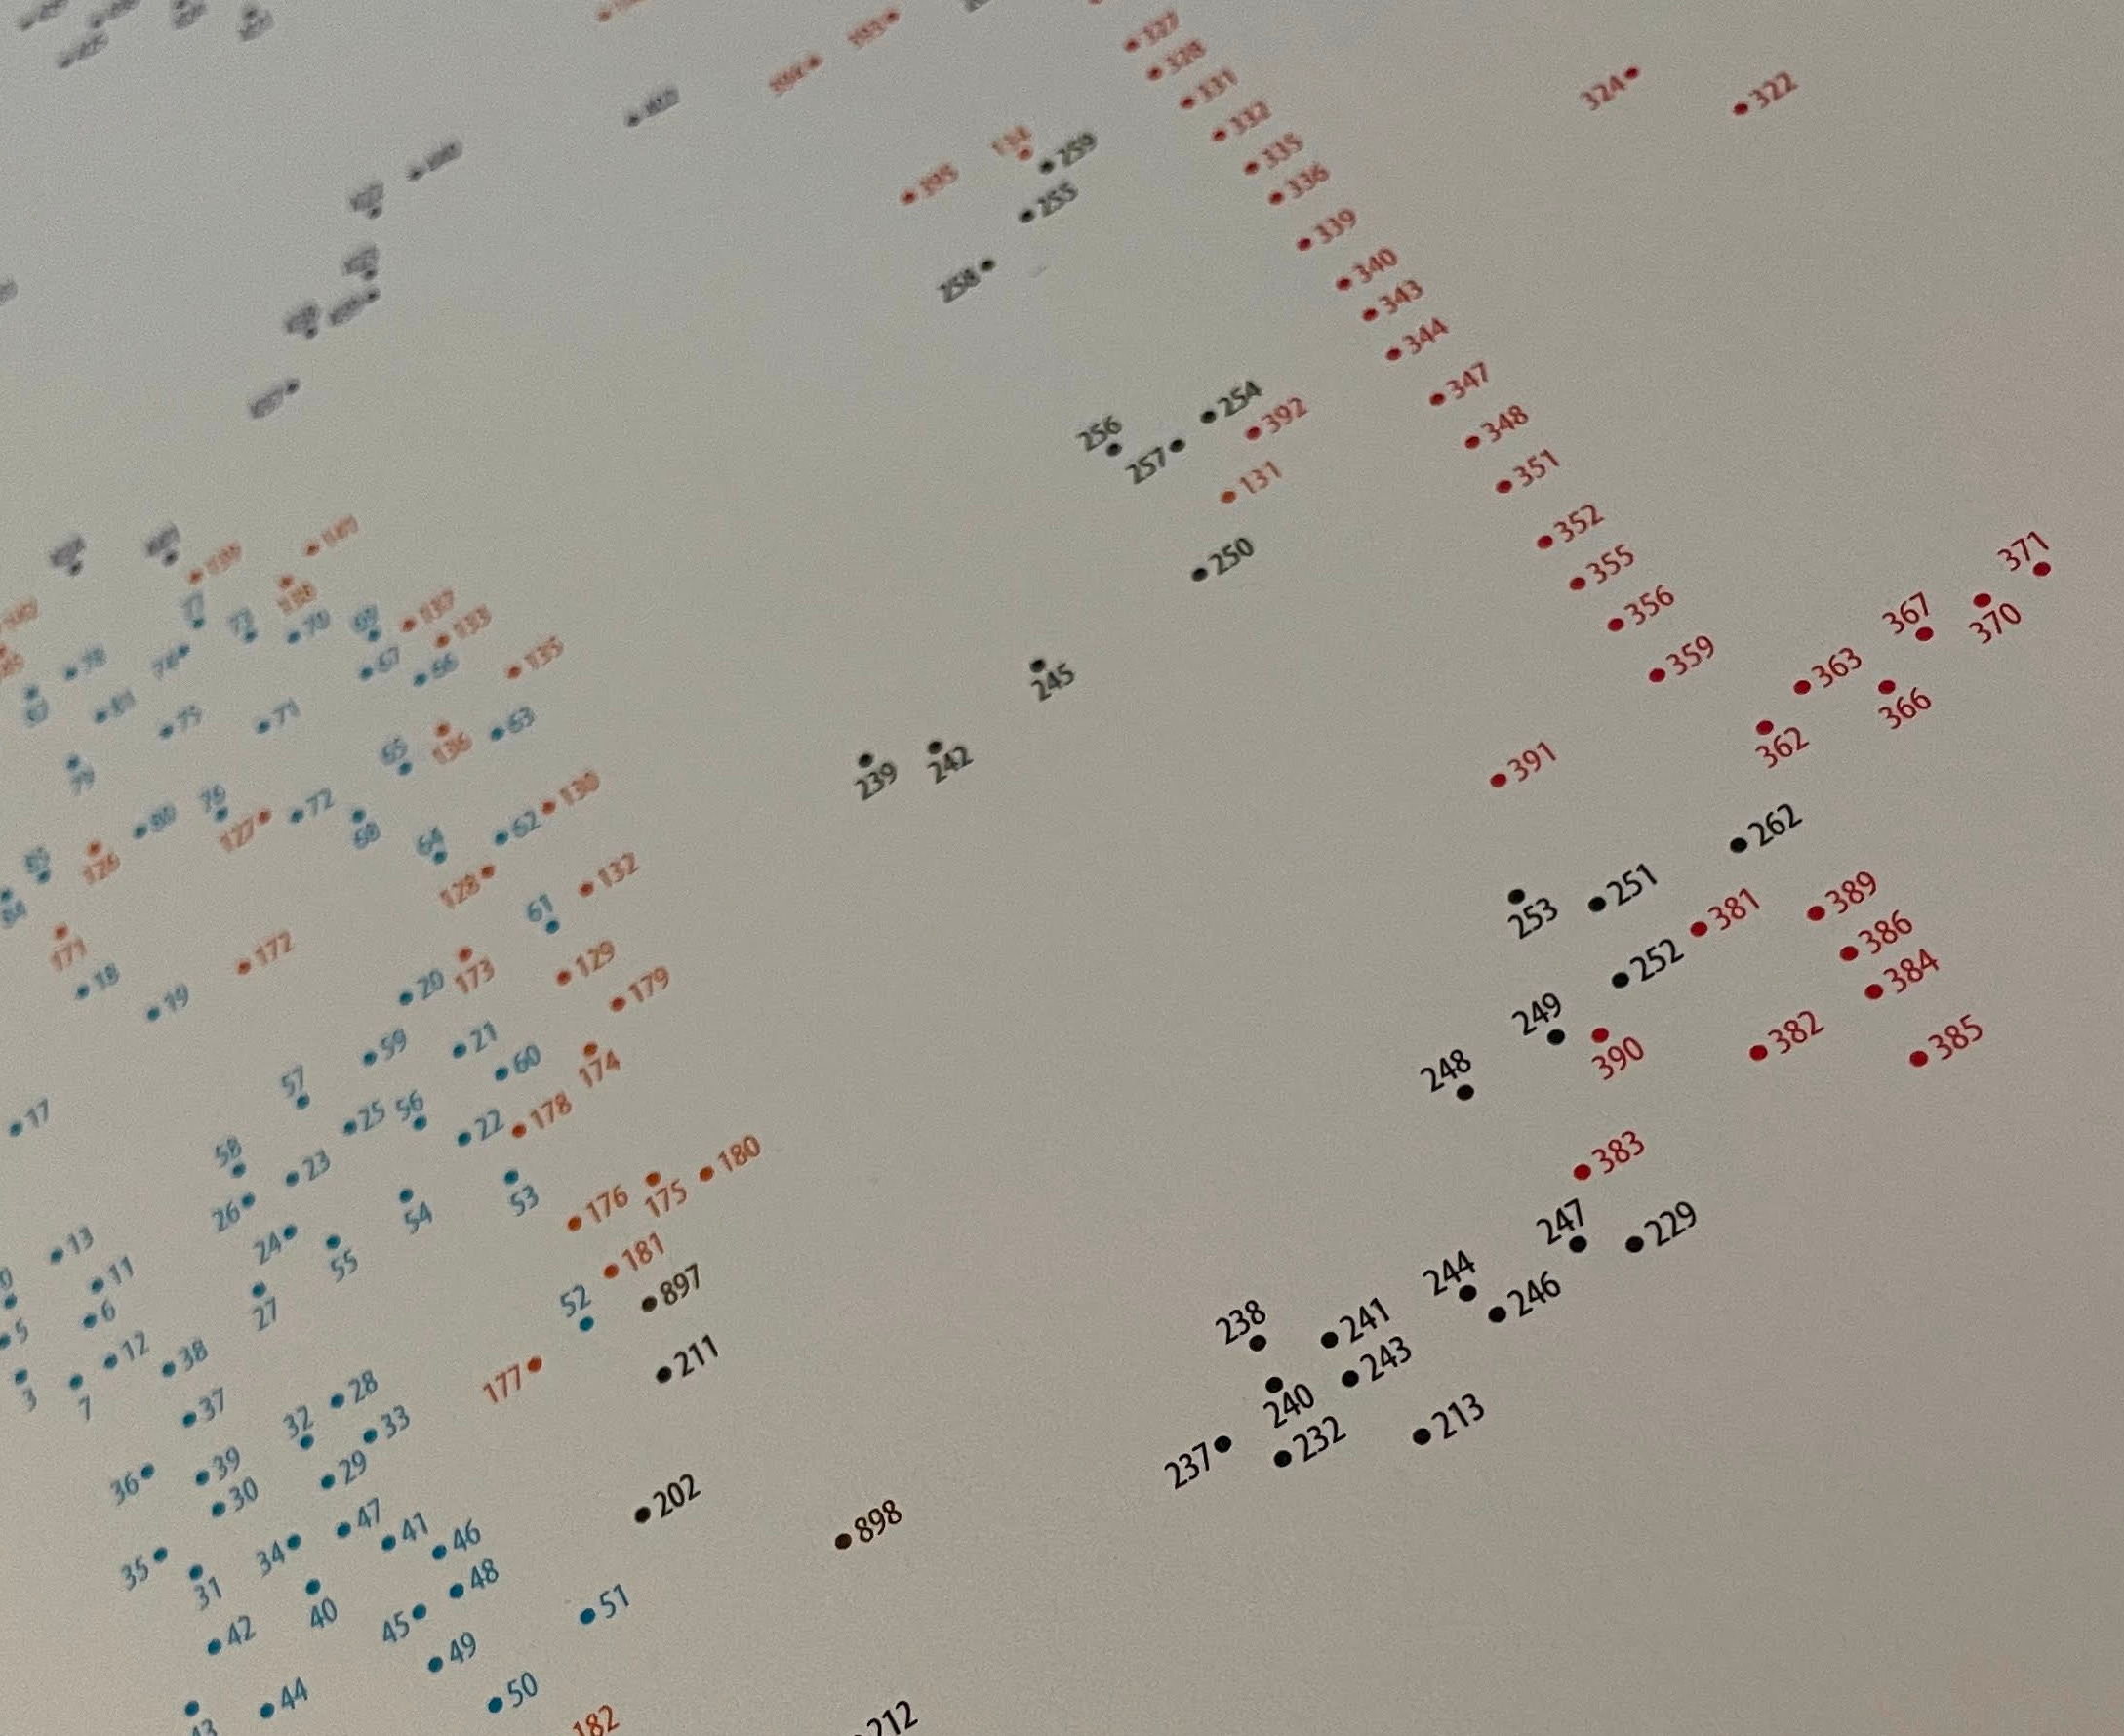 327
328
324
322
331
332
335
259
336
395
255
339
340
258
343
344
347
254
392
348
256
257
351
131
352
250
355
371
356
367
370
137
133
135
359
363
245
366
67
66
362
71
75
63
65
136
239
242
391
79
130
262
72
62
80
127
68
64
126
132
128
251
389
253
61
381
386
171
172
252
384
129
18
20
173
179
19
249
385
21
382
59
390
60
248
57
174
17
25
56
22
178
383
58
23
180
26
176
175
247
229
53
54
13
24
181
55
11
897
244
246
27
6
52
238
241
5
12
211
243
38
3
7
177
28
240
37
32
33
213
232
39
36
29
237
30
202
47
898
41
34
46
35
31
48
40
51
45
42
49
44
50
43
182
212